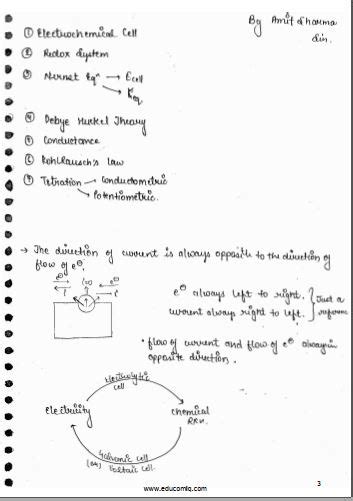 By Amit dharma
Sir.
① Electrochemical Cell
② Redox System
③ Nernst Eqⁿ → Ecell
→ Keq
④ Debye Huckel Theory
⑤ Conductance
⑥ Kohlrausch's law
⑦ Tetration → Conductometric
→ Potentiometric.
→ The direction of current is always opposite to the direction of
flow of e⊖.
e⊖ always left to right.
current always right to left.
Just a
• flow of current and flow of e⊖ always in
opposite direction.
Electrolytic
cell
Electricity
chemical
RXN.
Galvanic cell
(or) Voltaic cell.
www.educomiq.com
3